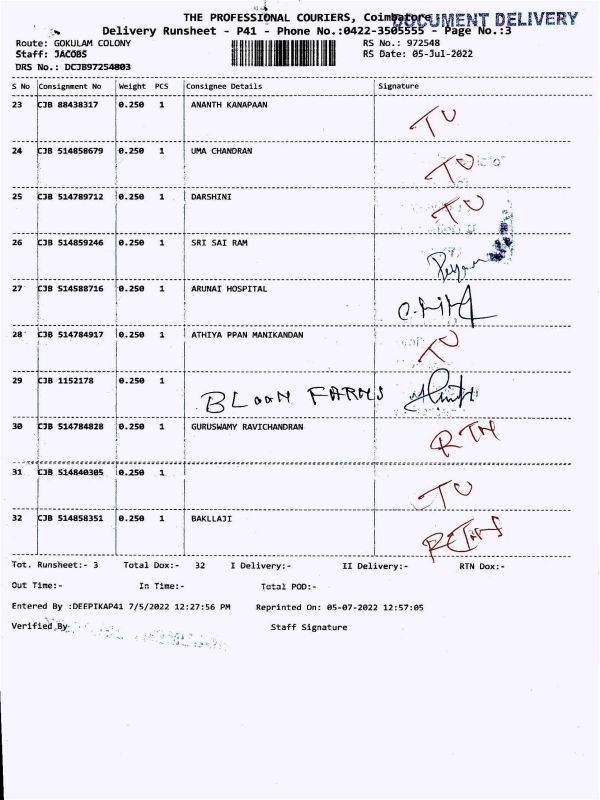 THE PROFESSIONAL COURIERS, Coimbatore
DOCUMENT DELIVERY
Delivery Runsheet - P41 - Phone No.:0422-3505555 - Page No.:3
Route: GOKULAM COLONY RS No.: 972548
Staff: JACOBS RS Date: 05-Jul-2022
DRS No.: DCJB97254803
S No Consignment No Weight PCS Consignee Details Signature
23 CJB 88438317 0.250 1 ANANTH KANAPAAN
TU
24 CJB 514858679 0.250 1 UMA CHANDRAN
TU
25 CJB 514789712 0.250 1 DARSHINI
TU
26 CJB 514859246 0.250 1 SRI SAI RAM
27 CJB 514588716 0.250 1 ARUNAI HOSPITAL
28 CJB 514784917 0.250 1 ATHIYA PPAN MANIKANDAN
TU
29 CJB 1152178 0.250 1
BLOON FARMS
30 CJB 514784828 0.250 1 GURUSWAMY RAVICHANDRAN
RTN
31 CJB 514840305 0.250 1
TU
32 CJB 514858351 0.250 1 BAKLLAJI
Tot. Runsheet:- 3 Total Dox:- 32 I Delivery:- II Delivery:- RTN Dox:-
Out Time:- In Time:- Total POD:-
Entered By :DEEPIKAP41 7/5/2022 12:27:56 PM Reprinted On: 05-07-2022 12:57:05
Verified By Staff Signature